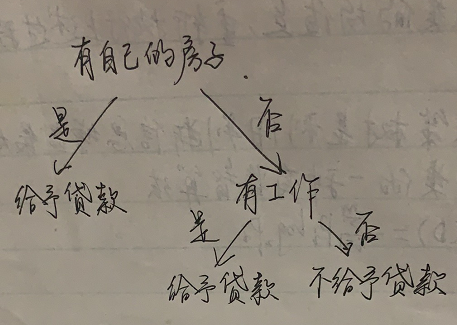 有自己的房子.
是 否
给予贷款
有工作
是 否
给予贷款 不给予贷款